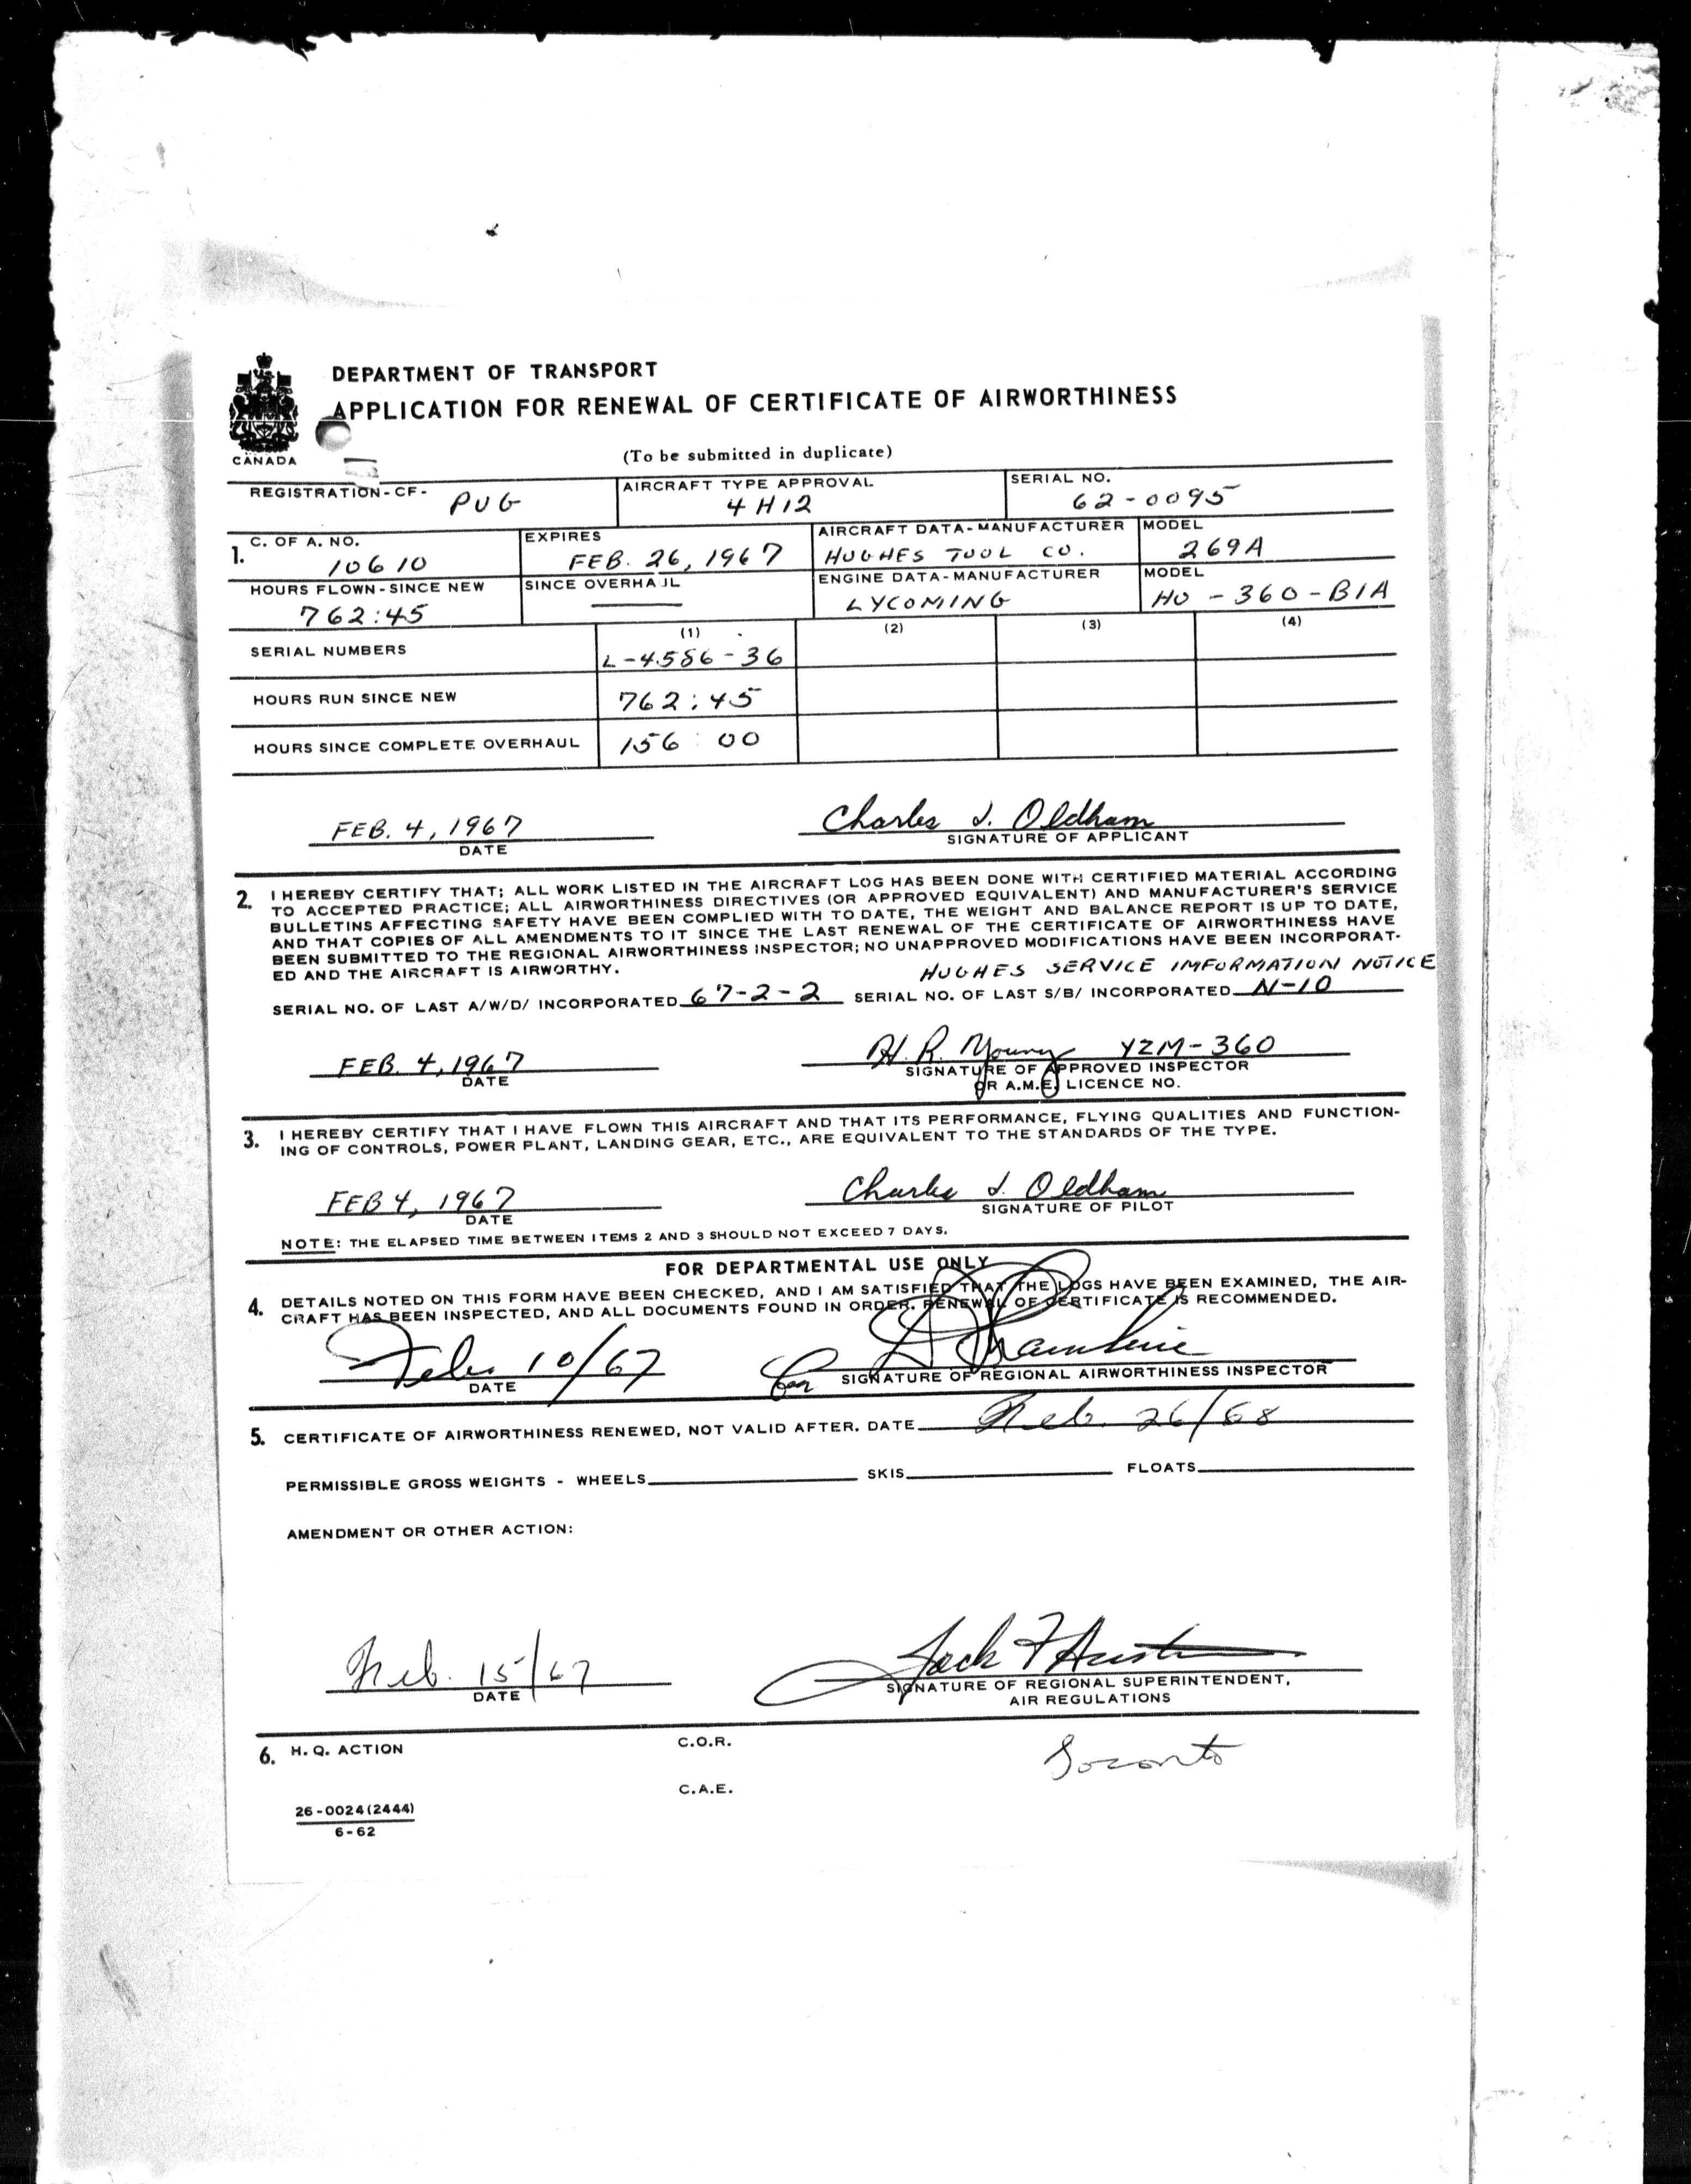 DEPARTMENT OF TRANSPORT
APPLICATION FOR RENEWAL OF CERTIFICATE OF AIRWORTHINESS
CANADA
(To be submitted in duplicate)
REGISTRATION-CF- PUG AIRCRAFT TYPE APPROVAL 4H12 SERIAL NO. 62-0095
1. C. OF A. NO. 10610 EXPIRES FEB. 26, 1967 AIRCRAFT DATA-MANUFACTURER HUGHES TOOL CO. MODEL 269A
HOURS FLOWN-SINCE NEW 762:45 SINCE OVERHAUL — ENGINE DATA-MANUFACTURER LYCOMING MODEL HO-360-B1A
(1) (2) (3) (4)
SERIAL NUMBERS L-4586-36
HOURS RUN SINCE NEW 762:45
HOURS SINCE COMPLETE OVERHAUL 156:00
FEB. 4, 1967 Charles J. Oldham
DATE SIGNATURE OF APPLICANT
2. I HEREBY CERTIFY THAT; ALL WORK LISTED IN THE AIRCRAFT LOG HAS BEEN DONE WITH CERTIFIED MATERIAL ACCORDING
TO ACCEPTED PRACTICE; ALL AIRWORTHINESS DIRECTIVES (OR APPROVED EQUIVALENT) AND MANUFACTURER'S SERVICE
BULLETINS AFFECTING SAFETY HAVE BEEN COMPLIED WITH TO DATE, THE WEIGHT AND BALANCE REPORT IS UP TO DATE,
AND THAT COPIES OF ALL AMENDMENTS TO IT SINCE THE LAST RENEWAL OF THE CERTIFICATE OF AIRWORTHINESS HAVE
BEEN SUBMITTED TO THE REGIONAL AIRWORTHINESS INSPECTOR; NO UNAPPROVED MODIFICATIONS HAVE BEEN INCORPORAT-
ED AND THE AIRCRAFT IS AIRWORTHY.
HUGHES SERVICE IMFORMATION NOTICE
SERIAL NO. OF LAST A/W/D/ INCORPORATED 67-2-2 SERIAL NO. OF LAST S/B/ INCORPORATED N-10
FEB. 4, 1967 H. R. Young YZM-360
DATE SIGNATURE OF APPROVED INSPECTOR
OR A.M.E. LICENCE NO.
3. I HEREBY CERTIFY THAT I HAVE FLOWN THIS AIRCRAFT AND THAT ITS PERFORMANCE, FLYING QUALITIES AND FUNCTION-
ING OF CONTROLS, POWER PLANT, LANDING GEAR, ETC., ARE EQUIVALENT TO THE STANDARDS OF THE TYPE.
FEB 4, 1967 Charles J. Oldham
DATE SIGNATURE OF PILOT
NOTE: THE ELAPSED TIME BETWEEN ITEMS 2 AND 3 SHOULD NOT EXCEED 7 DAYS.
FOR DEPARTMENTAL USE ONLY
4. DETAILS NOTED ON THIS FORM HAVE BEEN CHECKED, AND I AM SATISFIED THAT THE LOGS HAVE BEEN EXAMINED, THE AIR-
CRAFT HAS BEEN INSPECTED, AND ALL DOCUMENTS FOUND IN ORDER. RENEWAL OF CERTIFICATE IS RECOMMENDED.
Feb 10/67 for
DATE SIGNATURE OF REGIONAL AIRWORTHINESS INSPECTOR
5. CERTIFICATE OF AIRWORTHINESS RENEWED, NOT VALID AFTER. DATE Feb. 26/68
PERMISSIBLE GROSS WEIGHTS - WHEELS SKIS FLOATS
AMENDMENT OR OTHER ACTION:
Feb. 15/67 Jack F Austin
DATE SIGNATURE OF REGIONAL SUPERINTENDENT,
AIR REGULATIONS
6. H. Q. ACTION C.O.R. Toronto
C.A.E.
26-0024(2444)
6-62